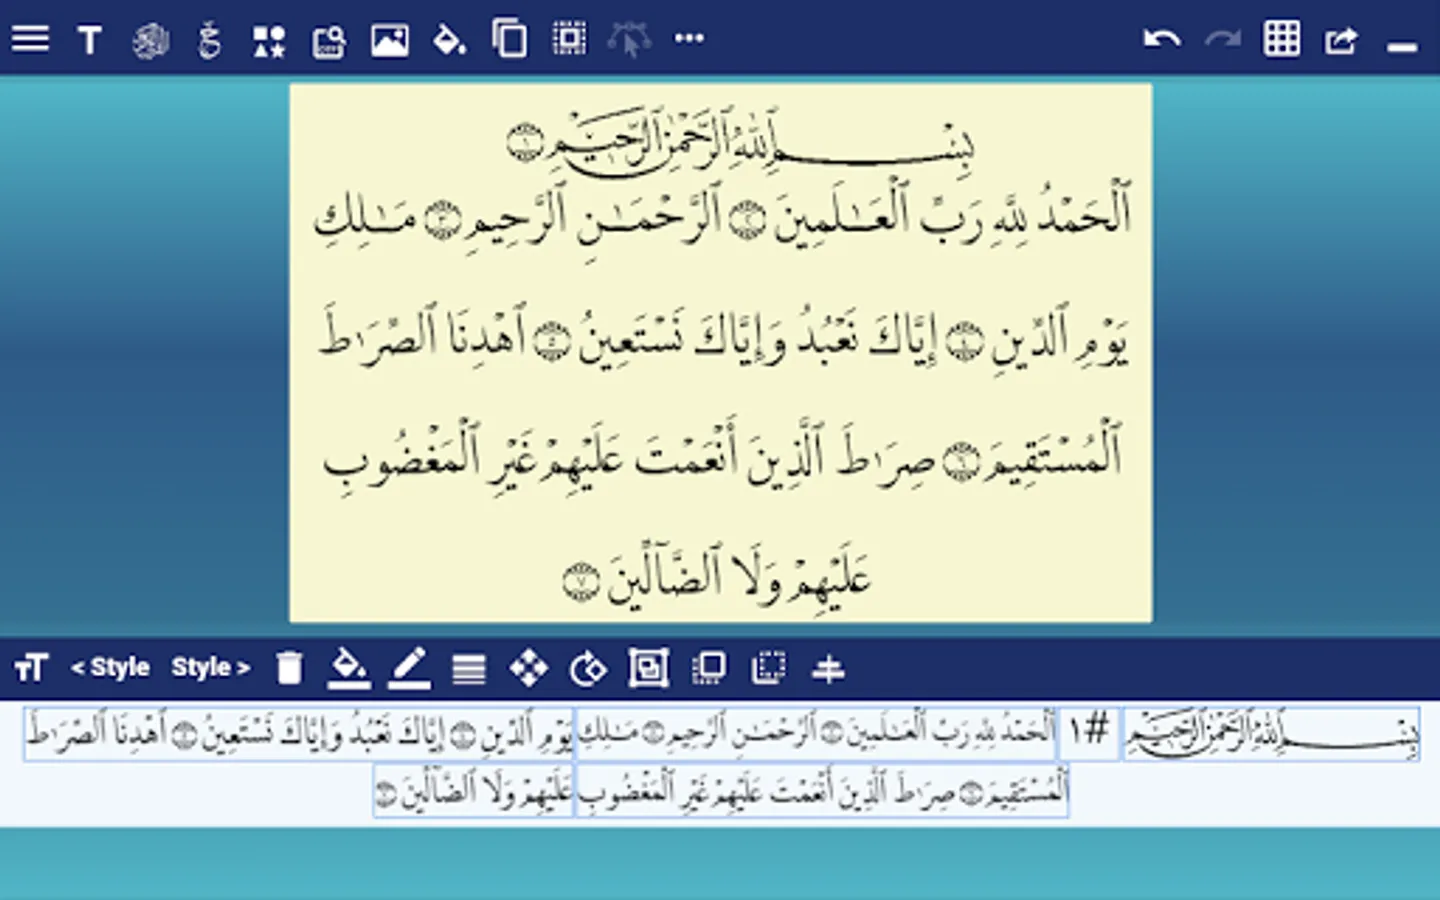 T
بِسْمِ ٱللَّهِ ٱلرَّحْمَٰنِ ٱلرَّحِيمِ ١
ٱلْحَمْدُ لِلَّهِ رَبِّ ٱلْعَـٰلَمِينَ ٢ ٱلرَّحْمَـٰنِ ٱلرَّحِيمِ ٣ مَـٰلِكِ
يَوْمِ ٱلدِّينِ ٤ إِيَّاكَ نَعْبُدُ وَإِيَّاكَ نَسْتَعِينُ ٥ ٱهْدِنَا ٱلصِّرَٰطَ
ٱلْمُسْتَقِيمَ ٦ صِرَٰطَ ٱلَّذِينَ أَنْعَمْتَ عَلَيْهِمْ غَيْرِ ٱلْمَغْضُوبِ
عَلَيْهِمْ وَلَا ٱلضَّآلِّينَ ٧
TT < Style Style >
بِسْمِ ٱللَّهِ ٱلرَّحْمَٰنِ ٱلرَّحِيمِ #١ ٱلْحَمْدُ لِلَّهِ رَبِّ ٱلْعَـٰلَمِينَ ٱلرَّحْمَـٰنِ ٱلرَّحِيمِ مَـٰلِكِ يَوْمِ ٱلدِّينِ إِيَّاكَ نَعْبُدُ وَإِيَّاكَ نَسْتَعِينُ ٱهْدِنَا ٱلصِّرَٰطَ
ٱلْمُسْتَقِيمَ صِرَٰطَ ٱلَّذِينَ أَنْعَمْتَ عَلَيْهِمْ غَيْرِ ٱلْمَغْضُوبِ عَلَيْهِمْ وَلَا ٱلضَّآلِّينَ